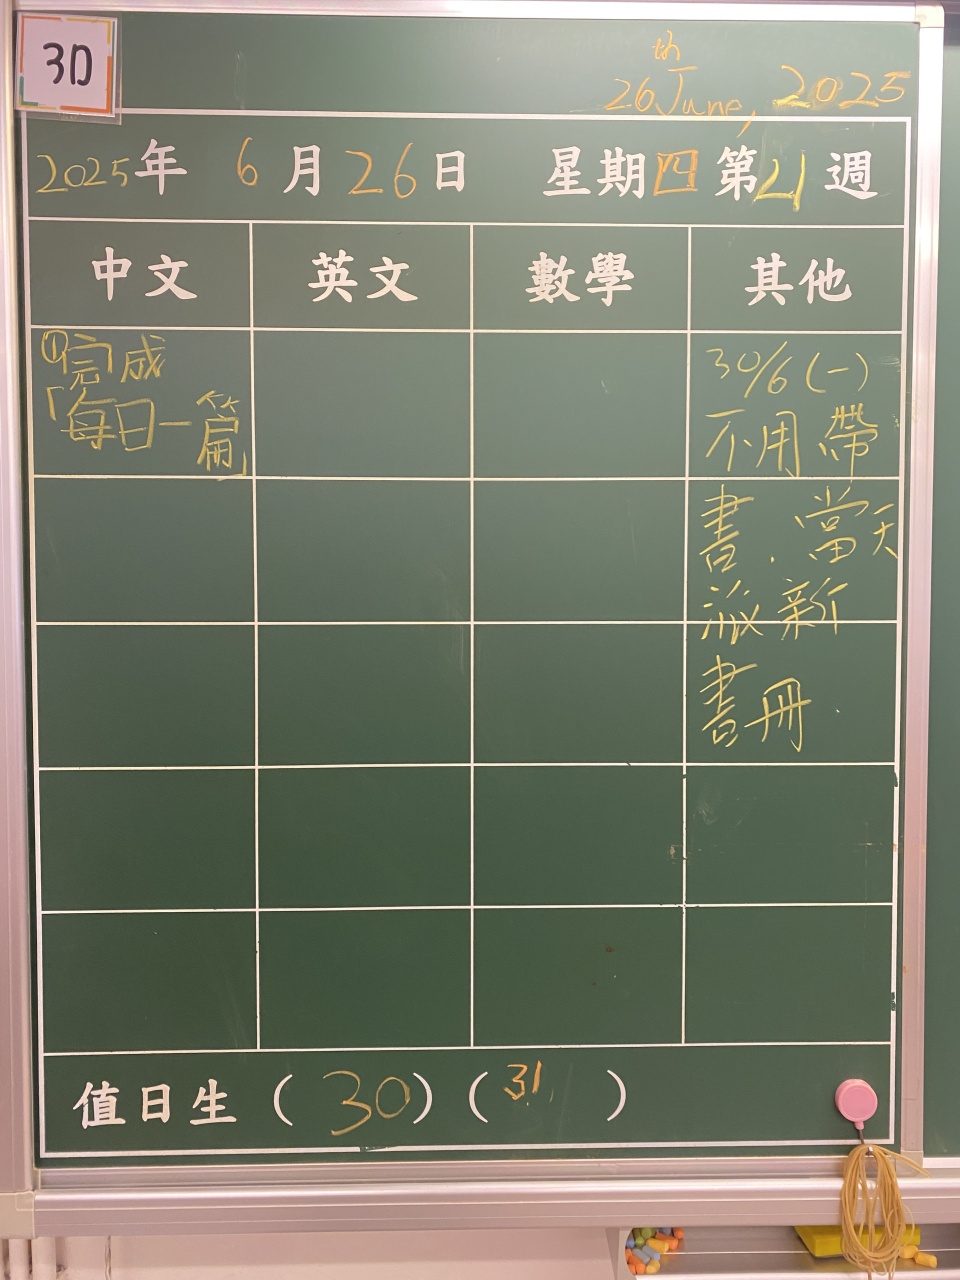 3D
26th June, 2025
2025年 6月26日 星期四 第41週
中文 英文 數學 其他
①完成
「每日一篇」
30/6(一)
不用帶
書．當天
派新
書冊．
值日生(30)(31)